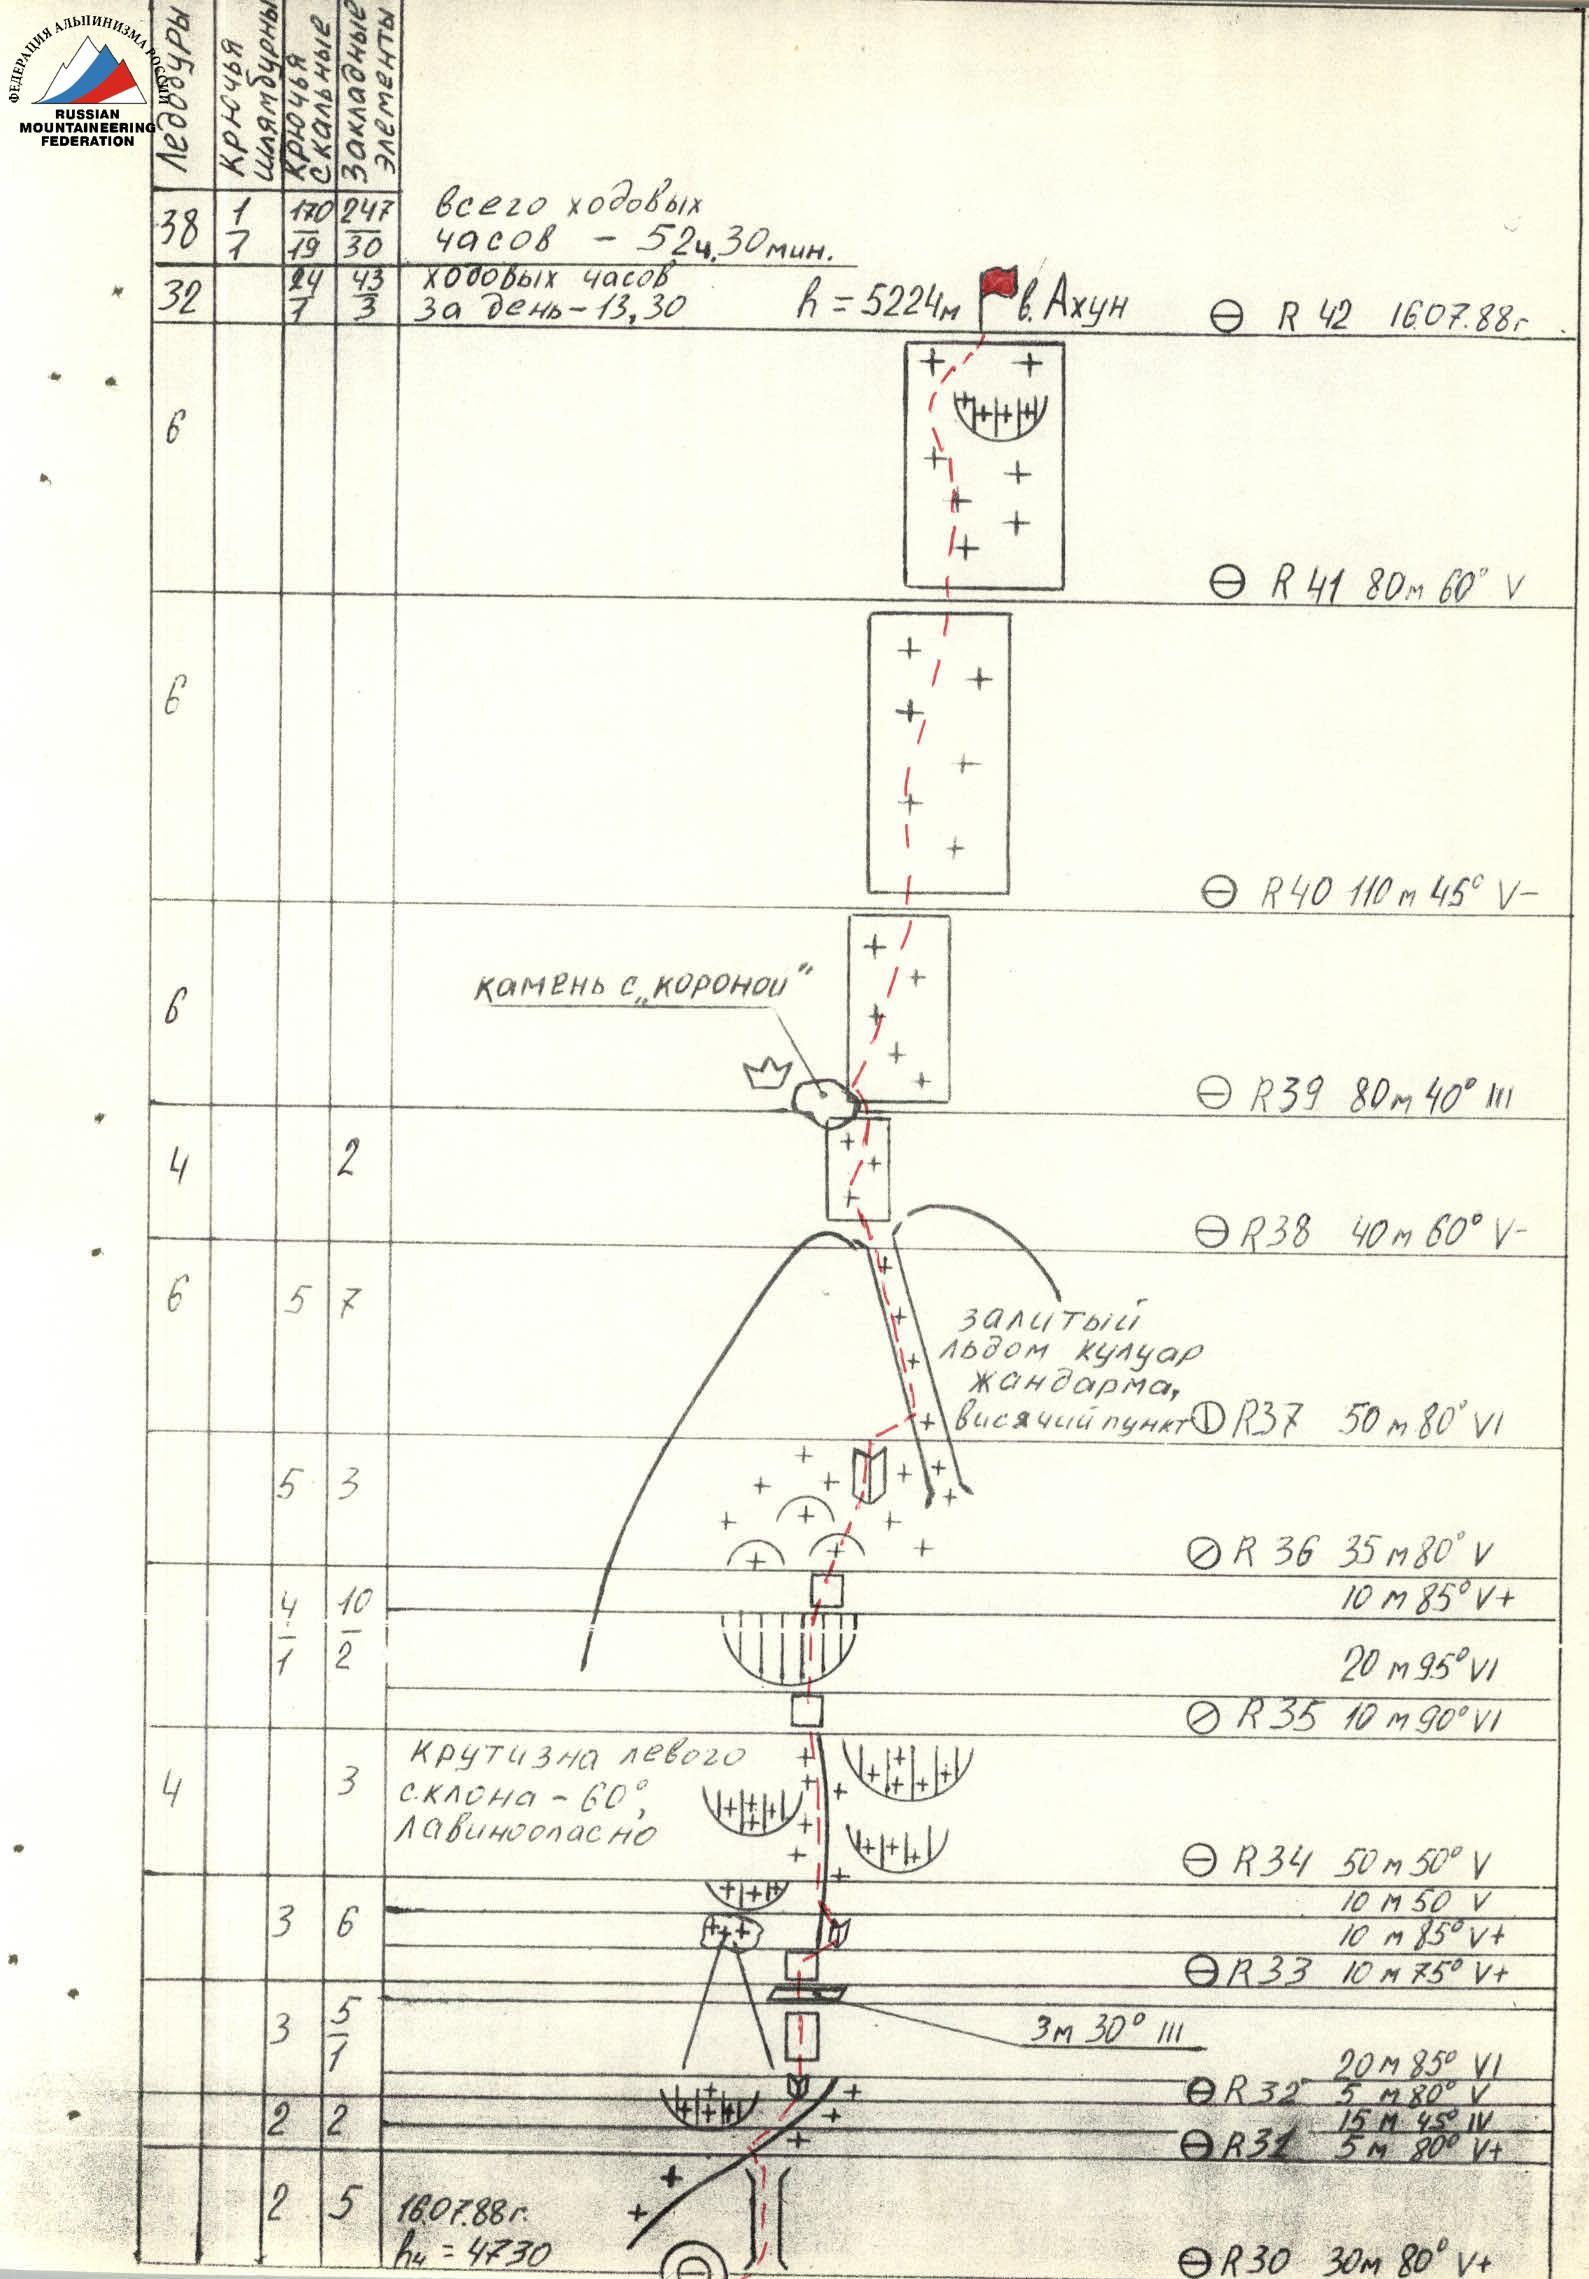 ФЕДЕРАЦИЯ АЛЬПИНИЗМА РОССИИ
RUSSIAN
MOUNTAINEERING
FEDERATION
Ледобуры
Крючья
шлямбурны
Крючья
скальные
Закладные
элементы
38 1/1 170/19 247/30 всего ходовых
часов - 52ч.30мин.
32 24/1 43/3 ходовых часов
за день - 13,30
h = 5224м в. Ахун R 42 16.07.88г.
6
R 41 80м 60° V
6
R 40 110м 45° V-
камень с „короной"
6
R39 80м 40° III
4 2
R38 40м 60° V-
6 5 7
залитый
льдом кулуар
жандарма,
висячий пункт R37 50м 80° VI
5 3
R 36 35м 80° V
4/1 10/2
10м 85° V+
20м 95° VI
R 35 10м 90° VI
Крутизна левого
склона - 60°,
лавиноопасно
4 3
R34 50м 50° V
10м 50 V
3 6
10м 85° V+
R33 10м 75° V+
3 5/1
3м 30° III
20м 85° VI
R32 5м 80° V
2 2
15м 45° IV
R31 5м 80° V+
2 5
16.07.88г.
hч = 4730
R30 30м 80° V+